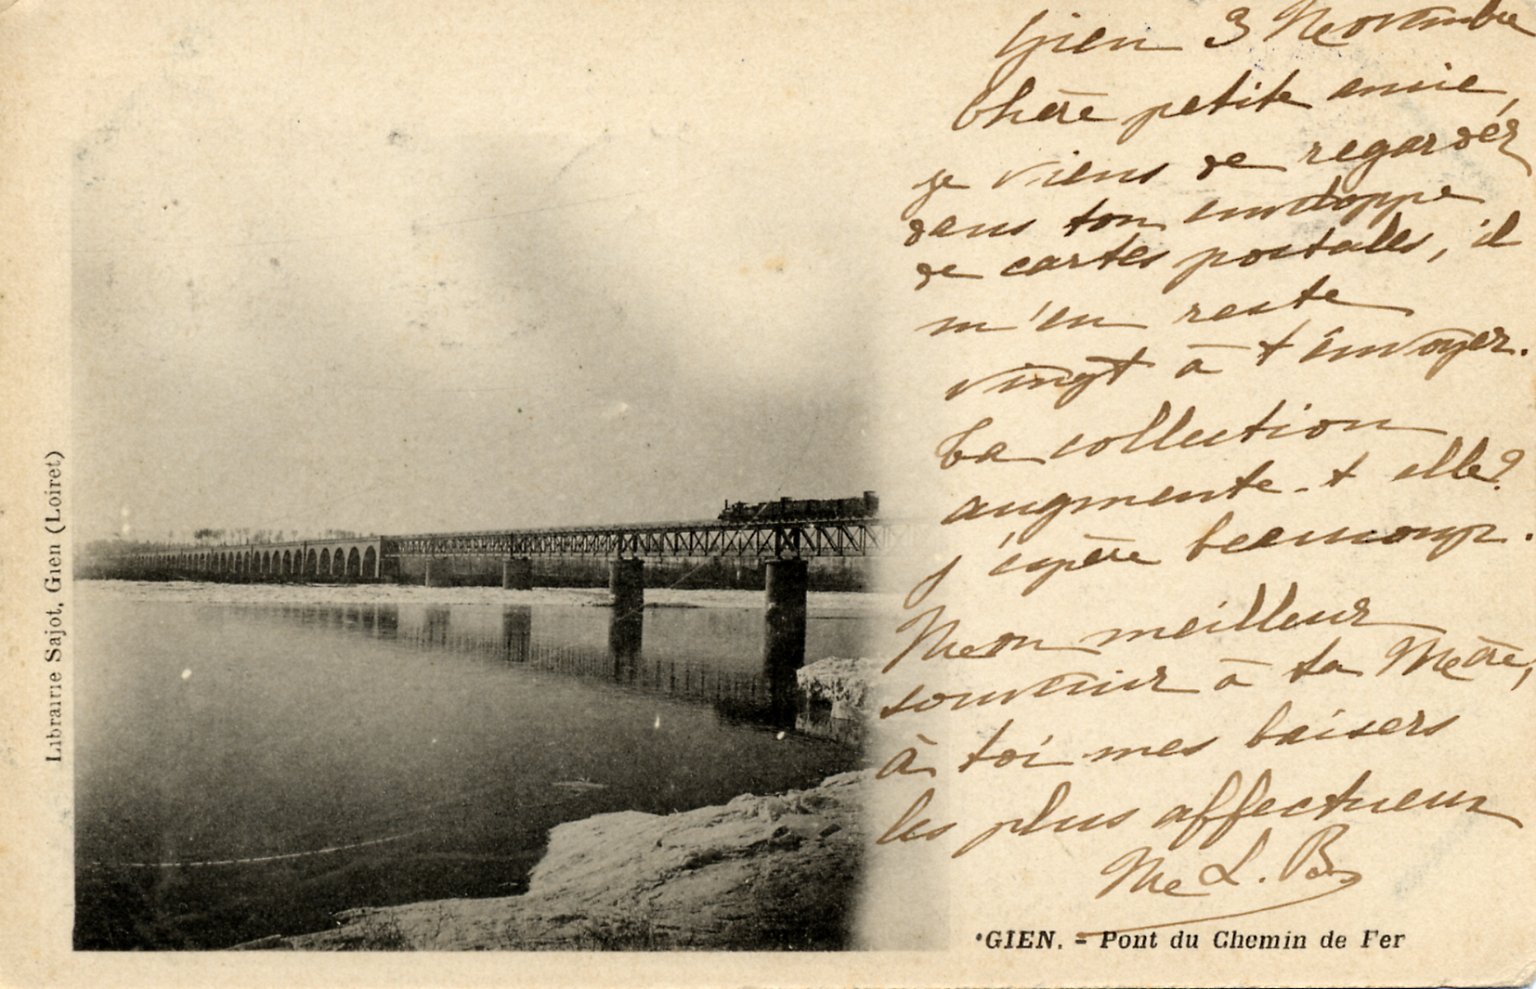 Gien 3 Novembre
Chère petite amie,
je viens de regarder
dans ton enveloppe
de cartes postales, il
m'en reste
vingt à t'envoyer.
Ta collection
augmente-t elle?
j'espère beaucoup.
Mon meilleur
souvenir à ta Mère,
à toi mes baisers
les plus affectueux
M L. B
GIEN. - Pont du Chemin de Fer
Librairie Sajot, Gien (Loiret)